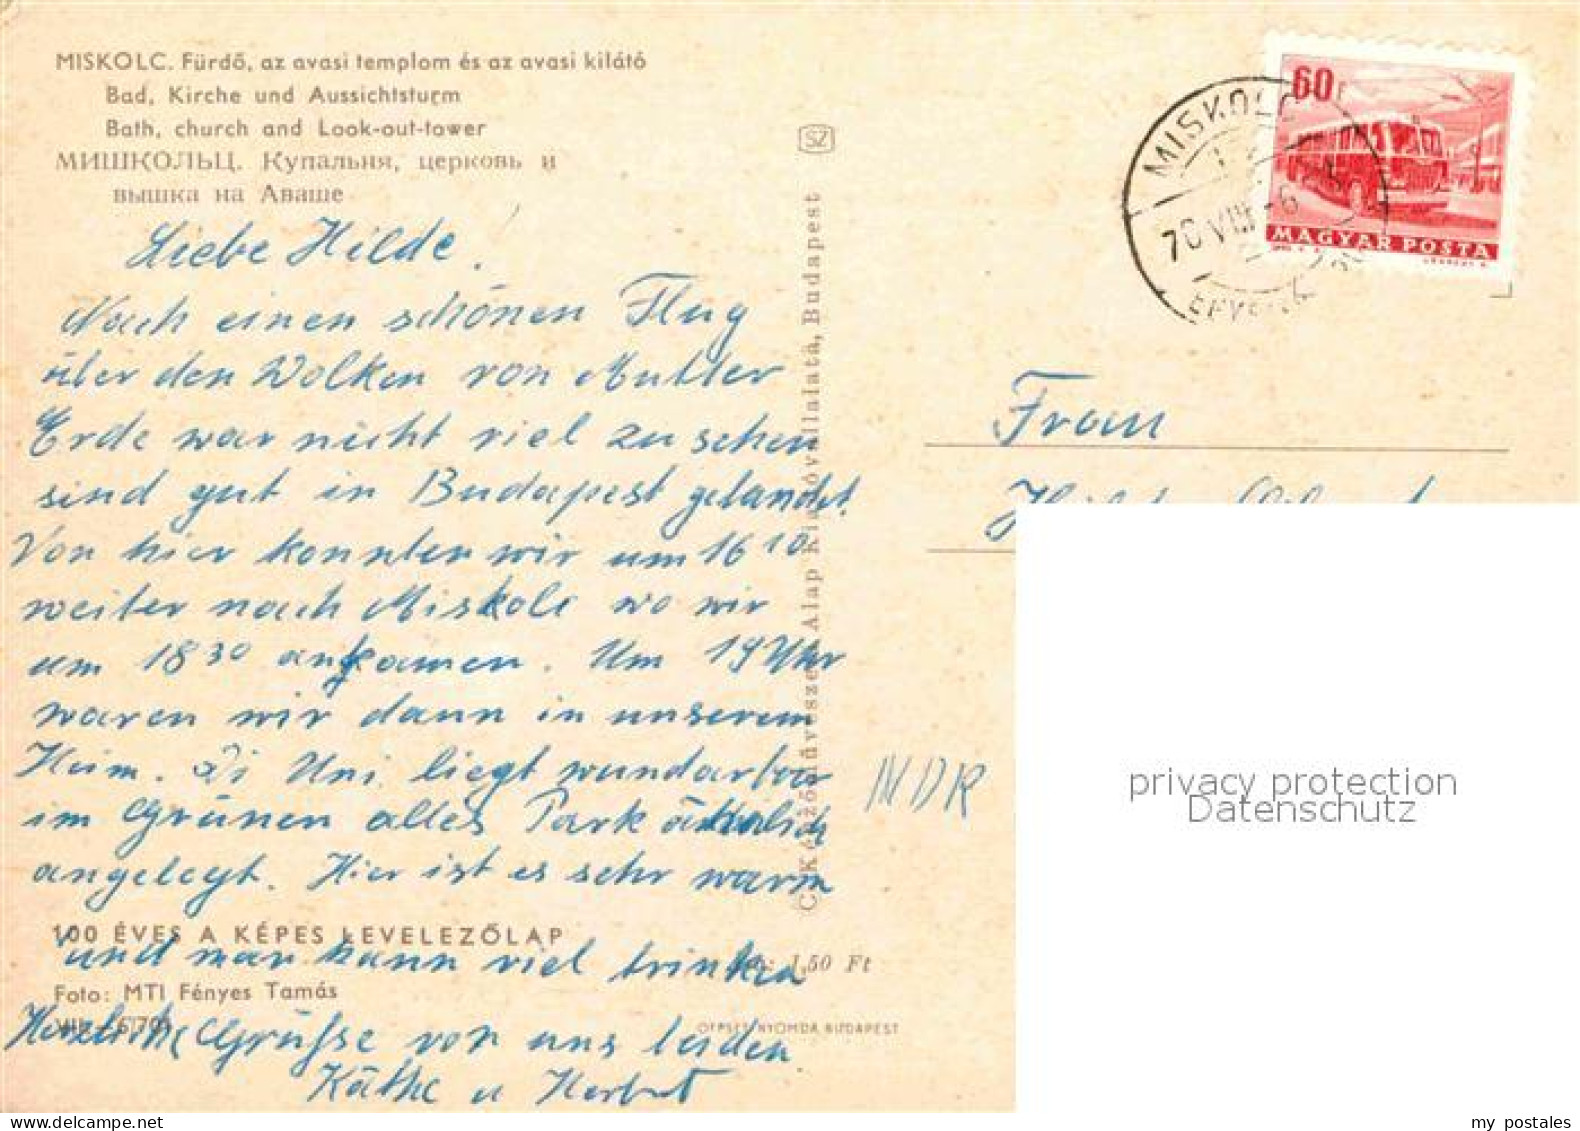 MISKOLC. Fürdő, az avasi templom és az avasi kilátó
Bad, Kirche und Aussichtsturm
Bath, church and Look-out-tower
МИШКОЛЬЦ. Купальня, церковь и
вышка на Аваше
Liebe Hilde!
Nach einen schönen Flug
über den Wolken von Mutter
Erde war nicht viel zu sehen
sind gut in Budapest gelandet.
Von hier konnten wir um 16 10
weiter nach Miskolc wo wir
um 18 30 ankamen. Um 19 Uhr
waren wir dann in unserem
Heim. Di Uni liegt wundarbar
im Grünen alles Park
angelegt. Hier ist es sehr warm
100 ÉVES A KÉPES LEVELEZŐLAP
und man kann viel trinken
1,50 Ft
Foto: MTI Fényes Tamás
Herzliche Grüße von uns beiden
OFFSET NYOMDA BUDAPEST
Käthe u Herbert
SZ
Képzőművészeti Alap Kiadóvállalata, Budapest
MISKOLC
70 VIII -6
60f
MAGYAR POSTA
Frau
privacy protection
Datenschutz
my postales